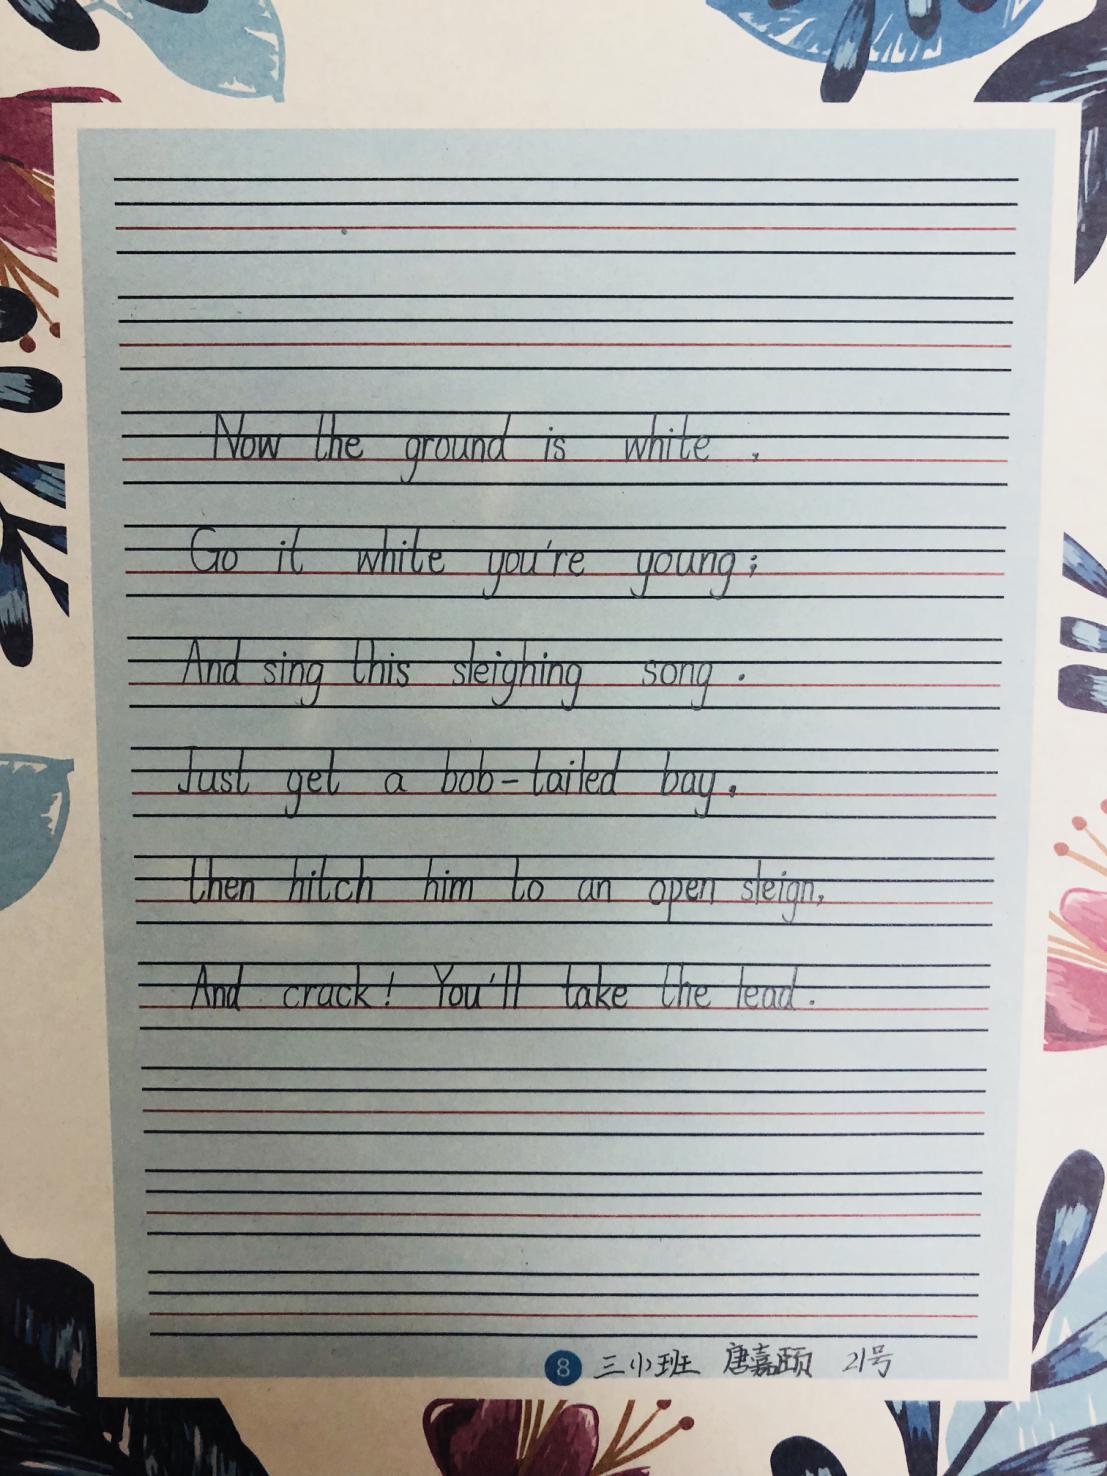 Now the ground is white ,
Go it white you're young;
And sing this sleighing song .
Just get a bob-tailed bay.
then hitch him to an open sleign,
And crack! You'll take the lead.
8 三小班 唐嘉颐 21号